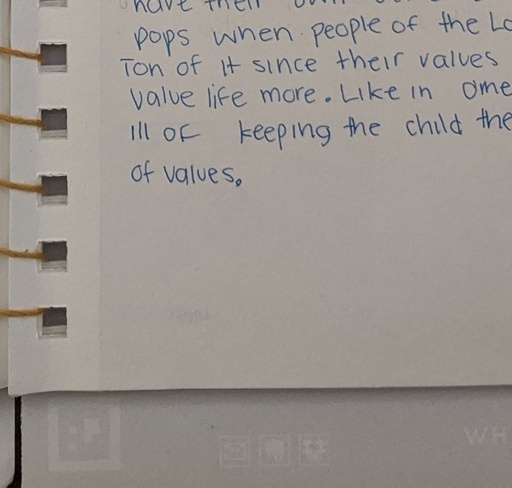 have their own
pops when people of the Lo
Ton of it since their values
value life more. Like in ome
ill of keeping the child the
of values.
WH